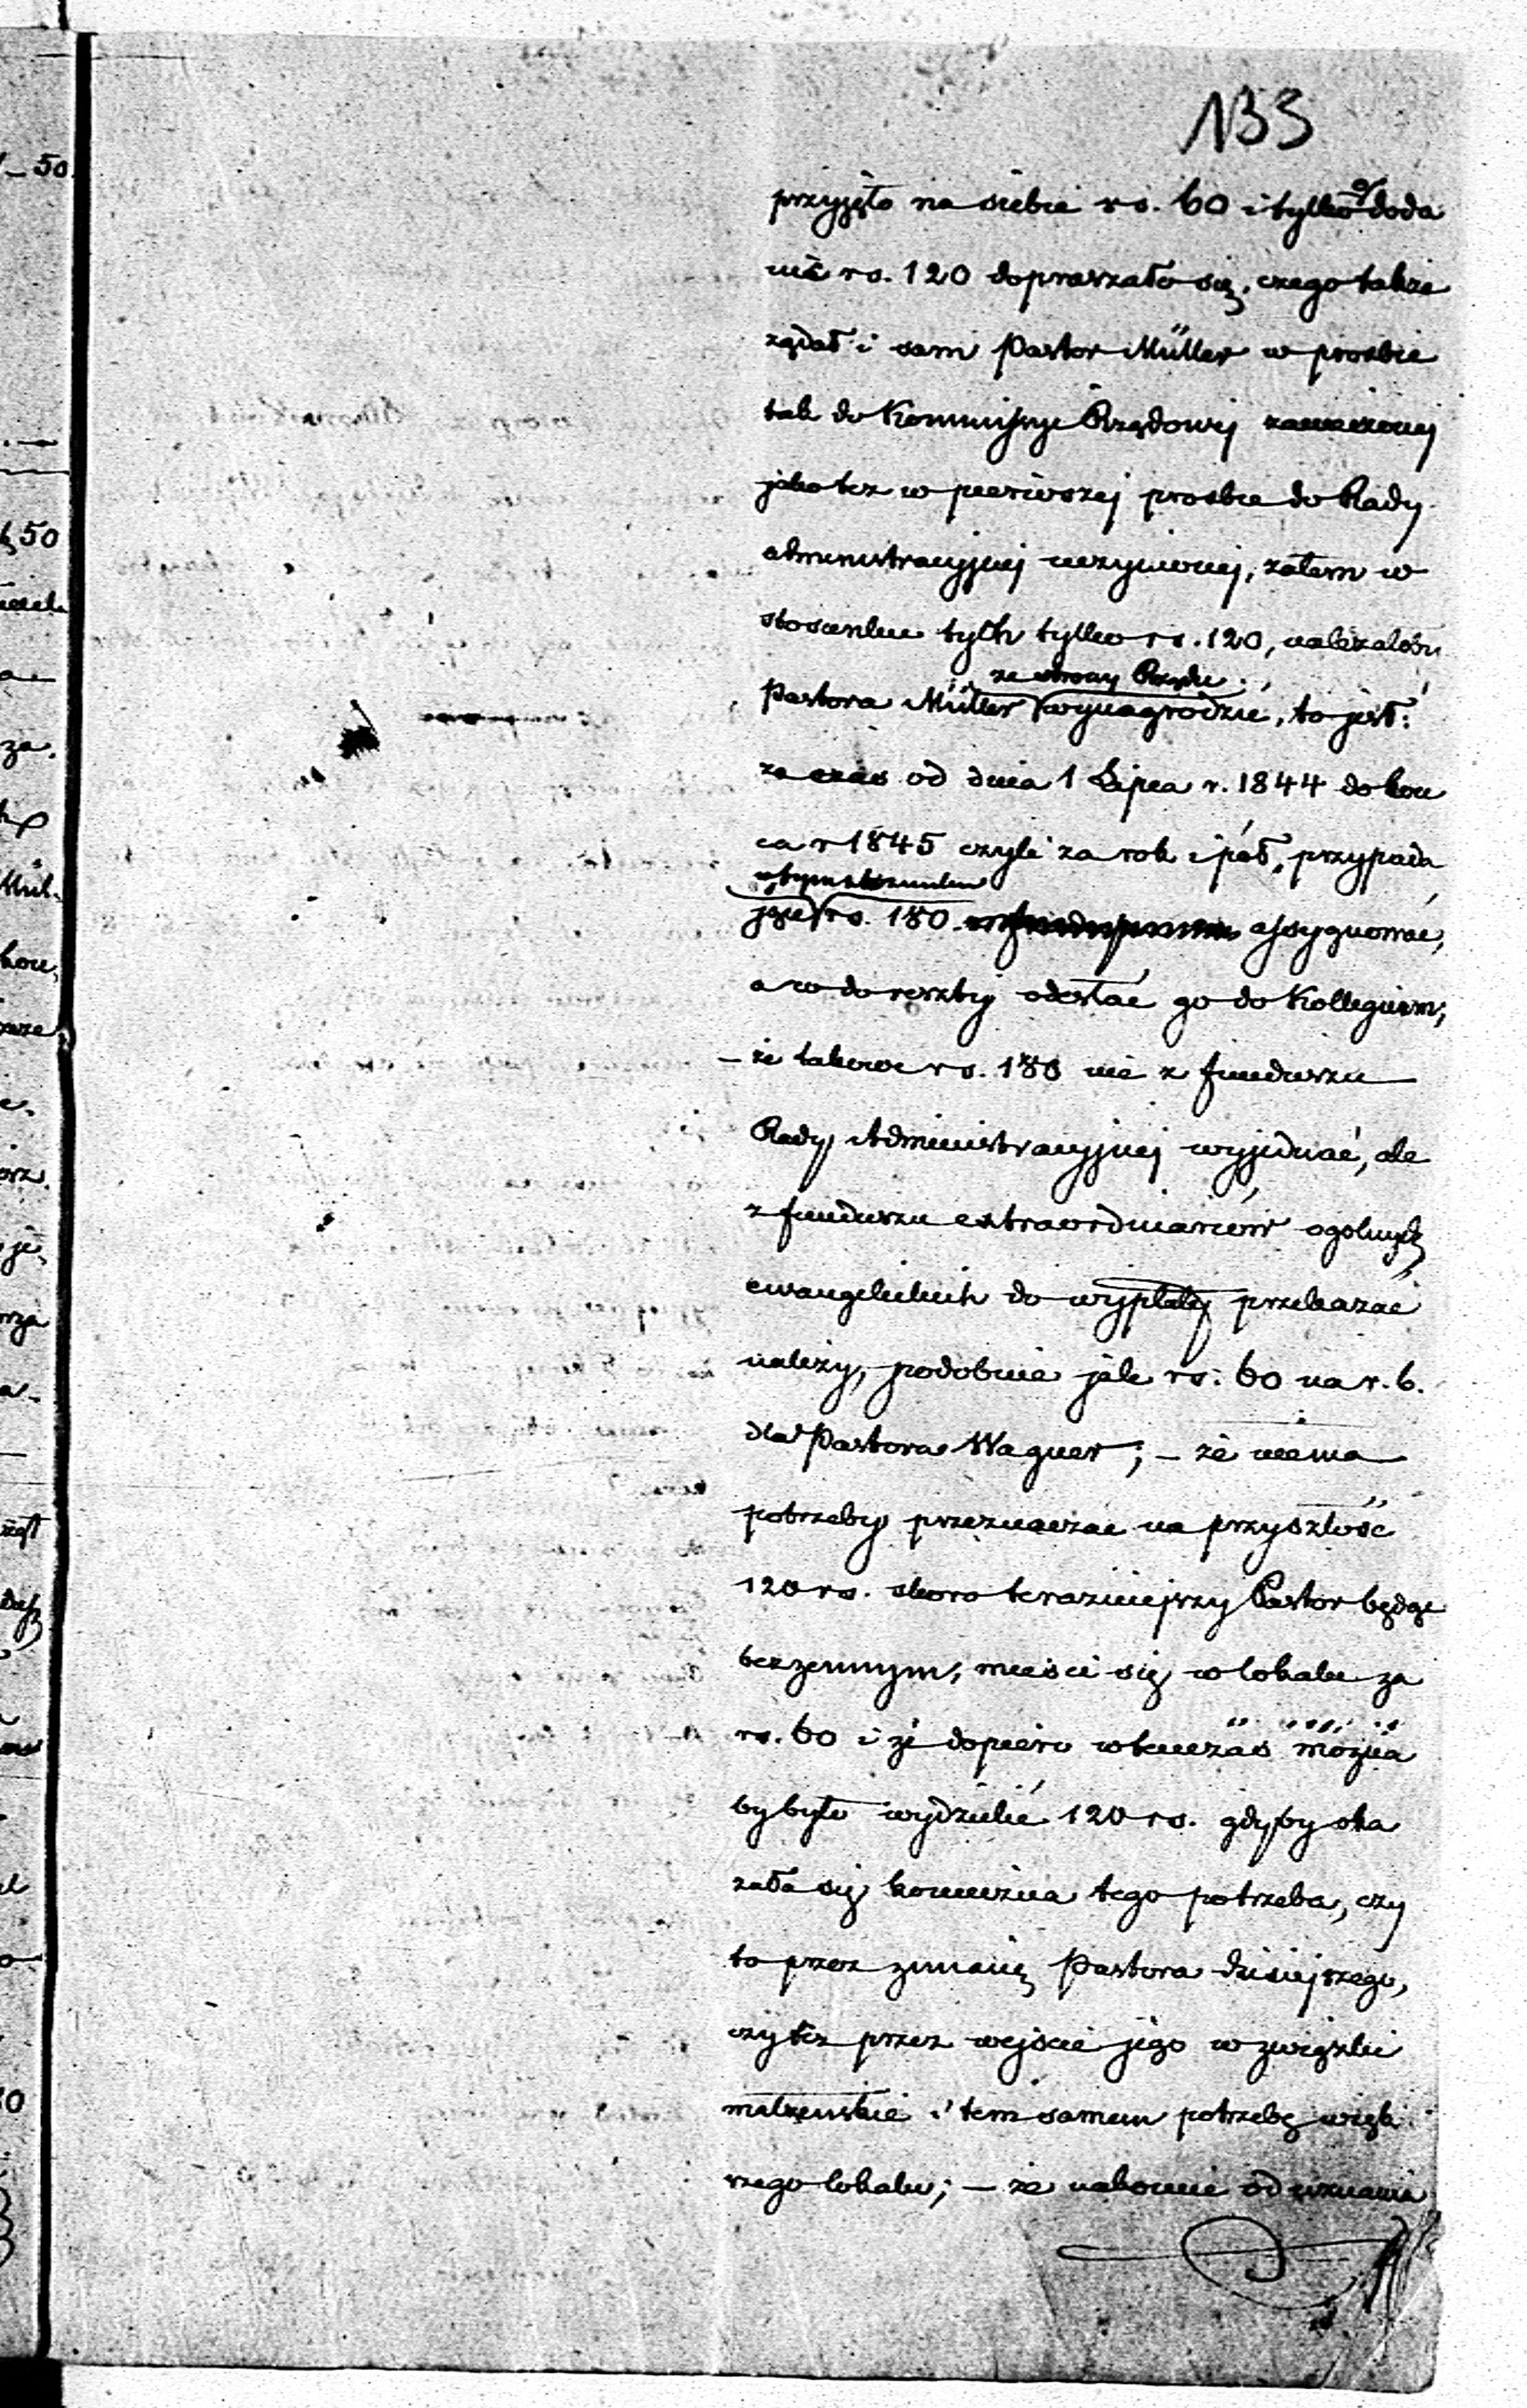 133
przyjęło na siebie rs. 60 i tylko o doda
nie rs. 120 dopraszało się, czego także
żądał i sam Pastor Müller w prośbie
tak do Kommissyi Rządowej zaniesionej
jako też w pierwszej prośbie do Rady
administracyjnej uczynionej, zatem w
stosunku tych tylko rs. 120, należałoby
ze strony Rządu
Pastora Müller wynagrodzić, to jest:
za czas od dnia 1 Lipca r. 1844 do koń
ca r 1845 czyli za rok i pół, przypada
w tym stosunku
jące rs. 180 assygnować,
a co do reszty odesłać go do Kollegium;
– że takowe rs. 180 nie z funduszu
Rady Administracyjnej wyjednać, ale
z funduszu extraordinariów ogólnych
ewangelickich do wypłaty przekazać
należy, podobnie jak rs. 60 na r. b.
dla Pastora Wagner; – że niema
potrzeby przeznaczać na przyszłość
120 rs. skoro terazniejszy Pastor będąc
bezżennym, mieści się w lokalu za
rs. 60 i że dopiero wtenczas można
by było wydzielić 120 rs. gdyby oka
zała się konieczna tego potrzeba, czy
to przez zmianę Pastora dzisiejszego,
czy też przez wejście jego w związki
małżeńskie i tem samem potrzebę więk
szego lokalu; – że nakoniec od uznania